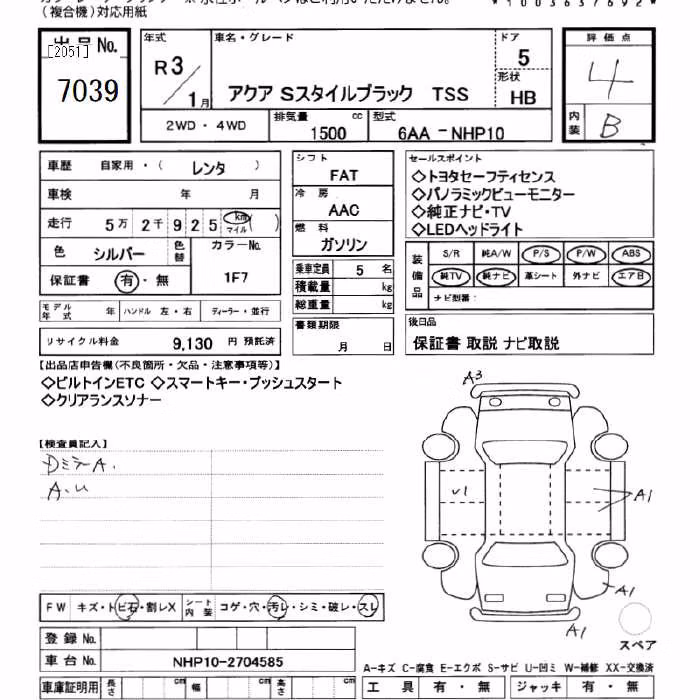 (複合機)対応用紙
*1003637692*
出品No.
[2051]
7039
年式
R3/1月
車名・グレード
アクア Sスタイルブラック TSS
ドア
5
形状
HB
評価点
4
内装
B
2WD・4WD
排気量 cc
1500
型式
6AA-NHP10
車歴 自家用・( レンタ )
車検 年 月
走行 5万 2千 9 2 5 km マイル ( )
色 シルバー 色替 カラーNo. 1F7
保証書 有・無
モデル年式 年 ハンドル 左・右 ディーラー・並行
リサイクル料金 9,130 円 預託済
シフト
FAT
冷房
AAC
燃料
ガソリン
乗車定員 5 名
積載量 kg
総重量 kg
書類期限
月 日
セールスポイント
◇トヨタセーフティセンス
◇パノラミックビューモニター
◇純正ナビ・TV
◇LEDヘッドライト
装備品
S/R 純A/W P/S P/W ABS
純TV 純ナビ 革シート 外ナビ エアB
ナビ型番:
後日品
保証書 取説 ナビ取説
【出品店申告欄(不良箇所・欠品・注意事項等)】
◇ビルトインETC ◇スマートキー・プッシュスタート
◇クリアランスソナー
【検査員記入】
DミラーA.
A.U
A3
V1
A1
A1
A1
スペア
FW キズ・トビ石・割レX シート内装 コゲ・穴・汚レ・シミ・破レ・スレ
登録No.
車台No. NHP10-2704585
車庫証明用 長さ cm 幅 cm 高さ cm
A-キズ C-腐食 E-エクボ S-サビ U-凹ミ W-補修 XX-交換済
工具 有・無 ジャッキ 有・無